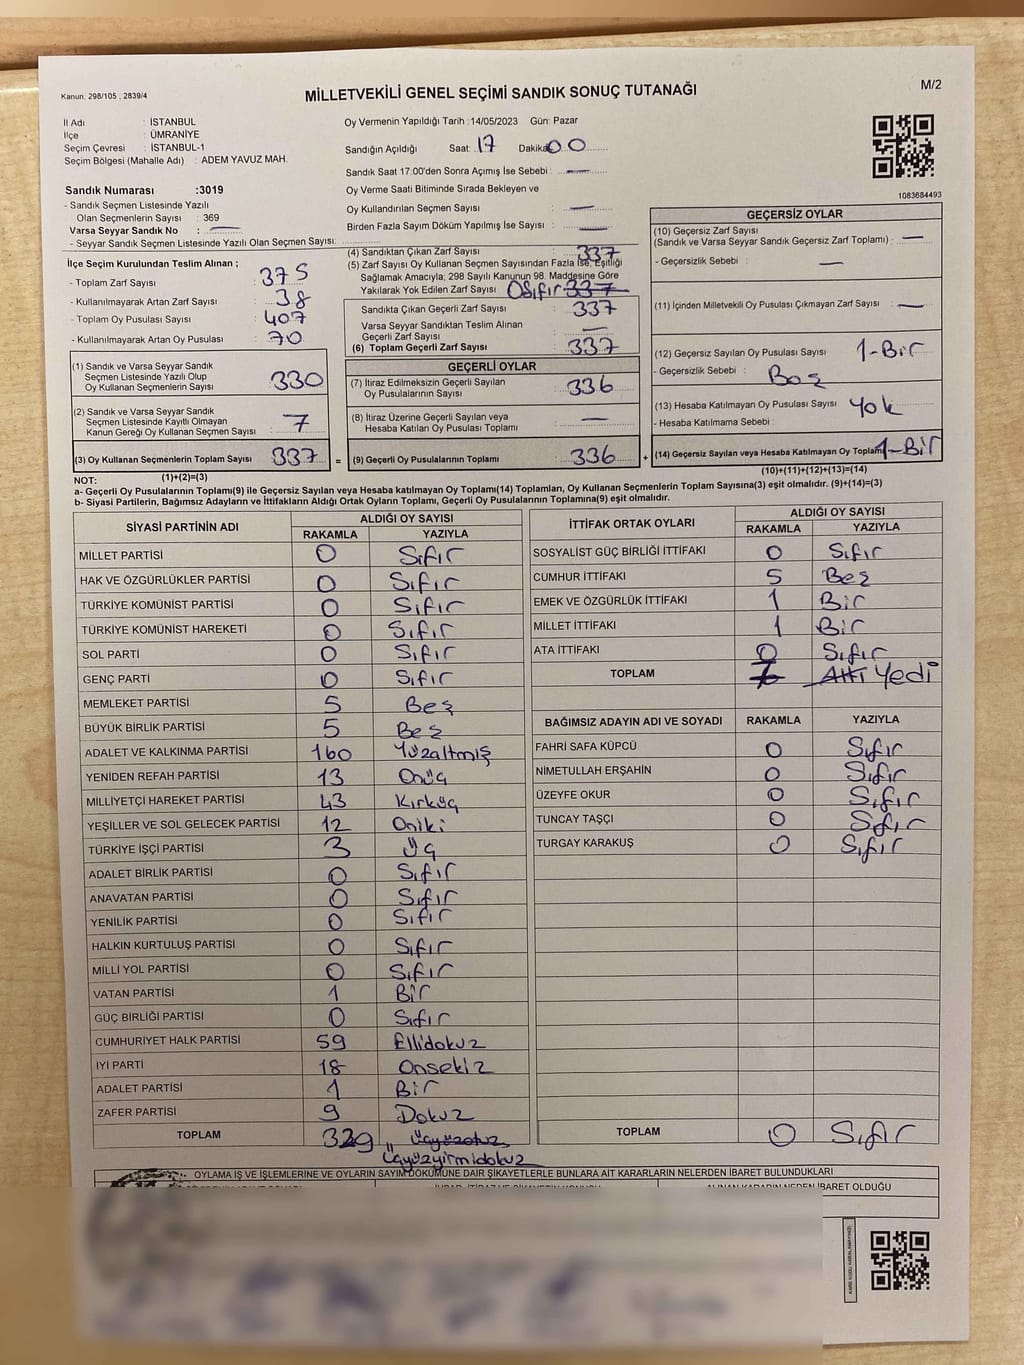 Kanun: 298/105 , 2839/4
MİLLETVEKİLİ GENEL SEÇİMİ SANDIK SONUÇ TUTANAĞI
M/2
İl Adı : İSTANBUL
İlçe : ÜMRANİYE
Seçim Çevresi : İSTANBUL-1
Seçim Bölgesi (Mahalle Adı) : ADEM YAVUZ MAH.
Sandık Numarası :3019
- Sandık Seçmen Listesinde Yazılı
Olan Seçmenlerin Sayısı : 369
Varsa Seyyar Sandık No :
- Seyyar Sandık Seçmen Listesinde Yazılı Olan Seçmen Sayısı:
Oy Vermenin Yapıldığı Tarih :14/05/2023 Gün: Pazar
Sandığın Açıldığı Saat: 17 Dakika 00
Sandık Saat 17:00'den Sonra Açımış İse Sebebi : —
Oy Verme Saati Bitiminde Sırada Bekleyen ve
Oy Kullandırılan Seçmen Sayısı —
Birden Fazla Sayım Döküm Yapılmış İse Sayısı : —
1083684493
İlçe Seçim Kurulundan Teslim Alınan ;
- Toplam Zarf Sayısı : 375
- Kullanılmayarak Artan Zarf Sayısı : 38
- Toplam Oy Pusulası Sayısı : 407
- Kullanılmayarak Artan Oy Pusulası : 70
(1) Sandık ve Varsa Seyyar Sandık
Seçmen Listesinde Yazılı Olup
Oy Kullanan Seçmenlerin Sayısı 330
(2) Sandık ve Varsa Seyyar Sandık
Seçmen Listesinde Kayıtlı Olmayan
Kanun Gereği Oy Kullanan Seçmen Sayısı : 7
(3) Oy Kullanan Seçmenlerin Toplam Sayısı 337 =
(1)+(2)=(3)
(4) Sandıktan Çıkan Zarf Sayısı 337
(5) Zarf Sayısı Oy Kullanan Seçmen Sayısından Fazla İse, Eşitliği
Sağlamak Amacıyla; 298 Sayılı Kanunun 98. Maddesine Göre
Yakılarak Yok Edilen Zarf Sayısı 0 Sıfır 337
Sandıkta Çıkan Geçerli Zarf Sayısı 337
Varsa Seyyar Sandıktan Teslim Alınan
Geçerli Zarf Sayısı —
(6) Toplam Geçerli Zarf Sayısı 337
GEÇERLİ OYLAR
(7) İtiraz Edilmeksizin Geçerli Sayılan
Oy Pusulalarının Sayısı 336
(8) İtiraz Üzerine Geçerli Sayılan veya
Hesaba Katılan Oy Pusulası Toplamı —
(9) Geçerli Oy Pusulalarının Toplamı 336 +
GEÇERSİZ OYLAR
(10) Geçersiz Zarf Sayısı
(Sandık ve Varsa Seyyar Sandık Geçersiz Zarf Toplamı) : —
- Geçersizlik Sebebi : —
(11) İçinden Milletvekili Oy Pusulası Çıkmayan Zarf Sayısı : —
(12) Geçersiz Sayılan Oy Pusulası Sayısı 1-Bir
- Geçersizlik Sebebi : Boş
(13) Hesaba Katılmayan Oy Pusulası Sayısı Yok
- Hesaba Katılmama Sebebi :
(14) Geçersiz Sayılan veya Hesaba Katılmayan Oy Toplamı 1-Bir
(10)+(11)+(12)+(13)=(14)
NOT:
a- Geçerli Oy Pusulalarının Toplamı(9) ile Geçersiz Sayılan veya Hesaba katılmayan Oy Toplamı(14) Toplamları, Oy Kullanan Seçmenlerin Toplam Sayısına(3) eşit olmalıdır. (9)+(14)=(3)
b- Siyasi Partilerin, Bağımsız Adayların ve İttifakların Aldığı Ortak Oyların Toplamı, Geçerli Oy Pusulalarının Toplamına(9) eşit olmalıdır.
SİYASİ PARTİNİN ADI ALDIĞI OY SAYISI
RAKAMLA YAZIYLA
MİLLET PARTİSİ 0 Sıfır
HAK VE ÖZGÜRLÜKLER PARTİSİ 0 Sıfır
TÜRKİYE KOMÜNİST PARTİSİ 0 Sıfır
TÜRKİYE KOMÜNİST HAREKETİ 0 Sıfır
SOL PARTİ 0 Sıfır
GENÇ PARTİ 0 Sıfır
MEMLEKET PARTİSİ 5 Beş
BÜYÜK BİRLİK PARTİSİ 5 Beş
ADALET VE KALKINMA PARTİSİ 160 Yüzaltmış
YENİDEN REFAH PARTİSİ 13 Onüç
MİLLİYETÇİ HAREKET PARTİSİ 43 Kırküç
YEŞİLLER VE SOL GELECEK PARTİSİ 12 Oniki
TÜRKİYE İŞÇİ PARTİSİ 3 Üç
ADALET BİRLİK PARTİSİ 0 Sıfır
ANAVATAN PARTİSİ 0 Sıfır
YENİLİK PARTİSİ 0 Sıfır
HALKIN KURTULUŞ PARTİSİ 0 Sıfır
MİLLİ YOL PARTİSİ 0 Sıfır
VATAN PARTİSİ 1 Bir
GÜÇ BİRLİĞİ PARTİSİ 0 Sıfır
CUMHURİYET HALK PARTİSİ 59 Ellidokuz
İYİ PARTİ 18 Onsekiz
ADALET PARTİSİ 1 Bir
ZAFER PARTİSİ 9 Dokuz
TOPLAM 329 Üçyüzotuz
Üçyüzyirmidokuz
İTTİFAK ORTAK OYLARI ALDIĞI OY SAYISI
RAKAMLA YAZIYLA
SOSYALİST GÜÇ BİRLİĞİ İTTİFAKI 0 Sıfır
CUMHUR İTTİFAKI 5 Beş
EMEK VE ÖZGÜRLÜK İTTİFAKI 1 Bir
MİLLET İTTİFAKI 1 Bir
ATA İTTİFAKI 0 Sıfır
TOPLAM 7 Altı Yedi
BAĞIMSIZ ADAYIN ADI VE SOYADI RAKAMLA YAZIYLA
FAHRİ SAFA KÜPCÜ 0 Sıfır
NİMETULLAH ERŞAHİN 0 Sıfır
ÜZEYFE OKUR 0 Sıfır
TUNCAY TAŞÇI 0 Sıfır
TURGAY KARAKUŞ 0 Sıfır
TOPLAM 0 Sıfır
OYLAMA İŞ VE İŞLEMLERİNE VE OYLARIN SAYIM DÖKÜMÜNE DAİR ŞİKAYETLERLE BUNLARA AİT KARARLARIN NELERDEN İBARET BULUNDUKLARI
ALINAN KARARIN NEDEN İBARET OLDUĞU